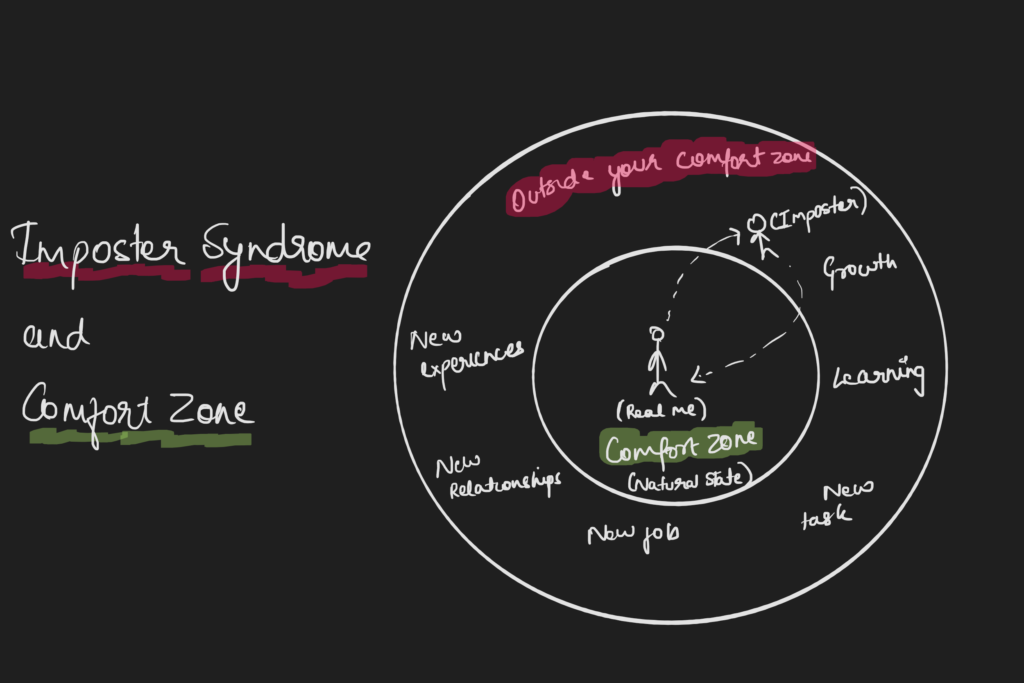 Imposter Syndrome
and
Comfort Zone
Outside your comfort zone
(Imposter)
Growth
New
experiences
Learning
(Real me)
Comfort zone
(Natural State)
New
Relationships
New
task
New job